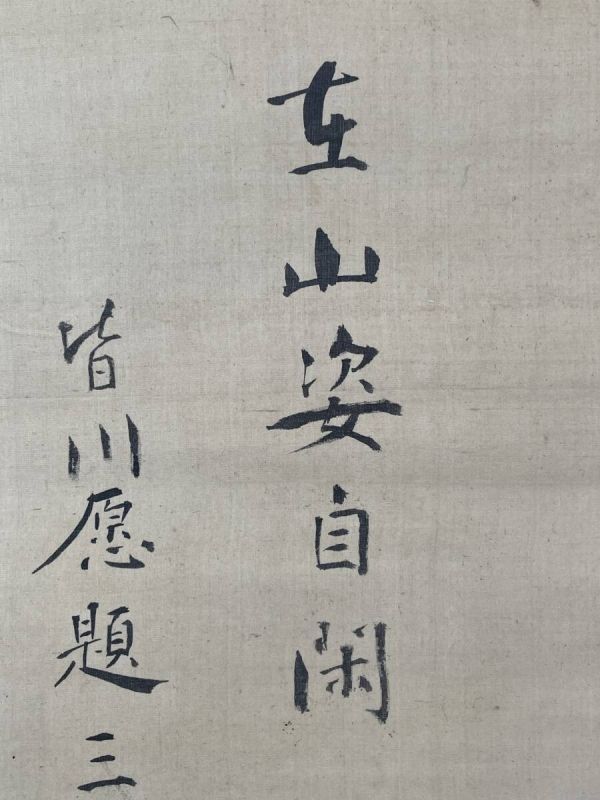 在山姿自閑
皆川愿題三